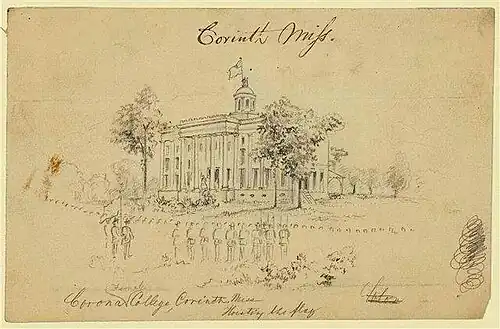 Corinth Miss.
Female
Corona College Corinth Miss
Hoisting the Flag